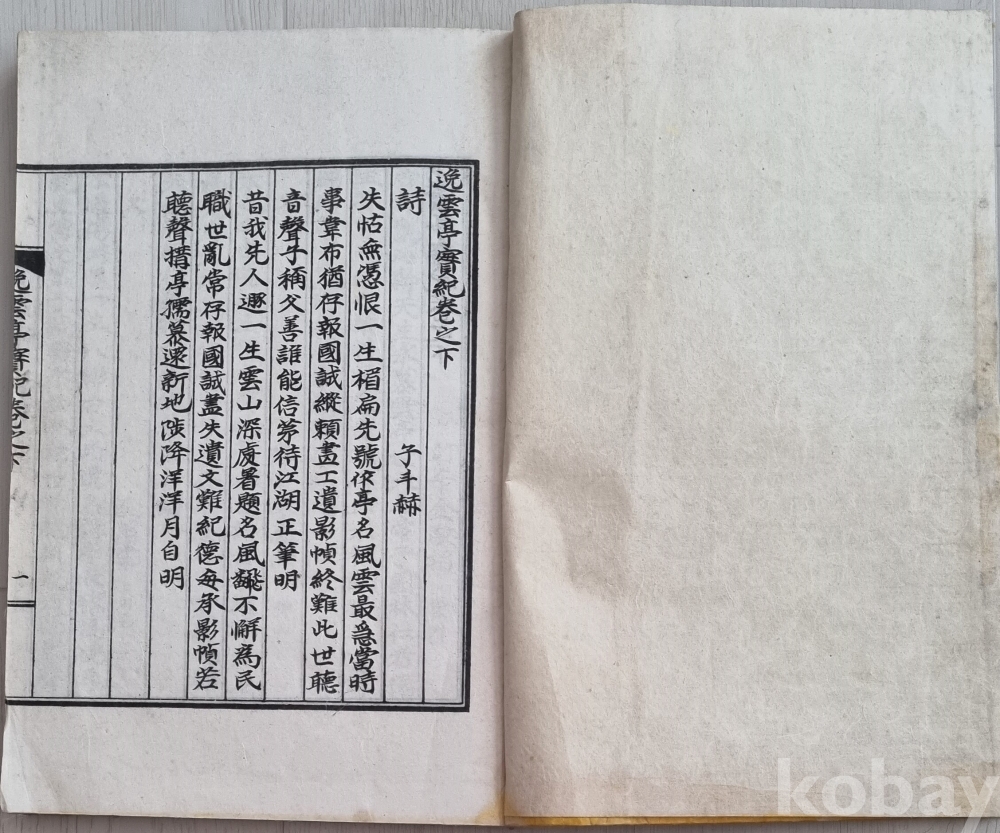 逸雲亭實紀卷之下
詩
子斗赫
失怙無憑恨一生楣扁先號作亭名風雲最急當時
事韋布猶存報國誠縱賴畫工遺影幀終難此世聽
音聲子稱父善誰能信茅待江湖正筆明
昔我先人遯一生雲山深處署題名風飜不懈為民
職世亂常存報國誠盡失遺文難紀德每承影幀若
聽聲搆亭孺慕遝新地陟降洋洋月自明
逸雲亭實紀卷之下
一
kobay